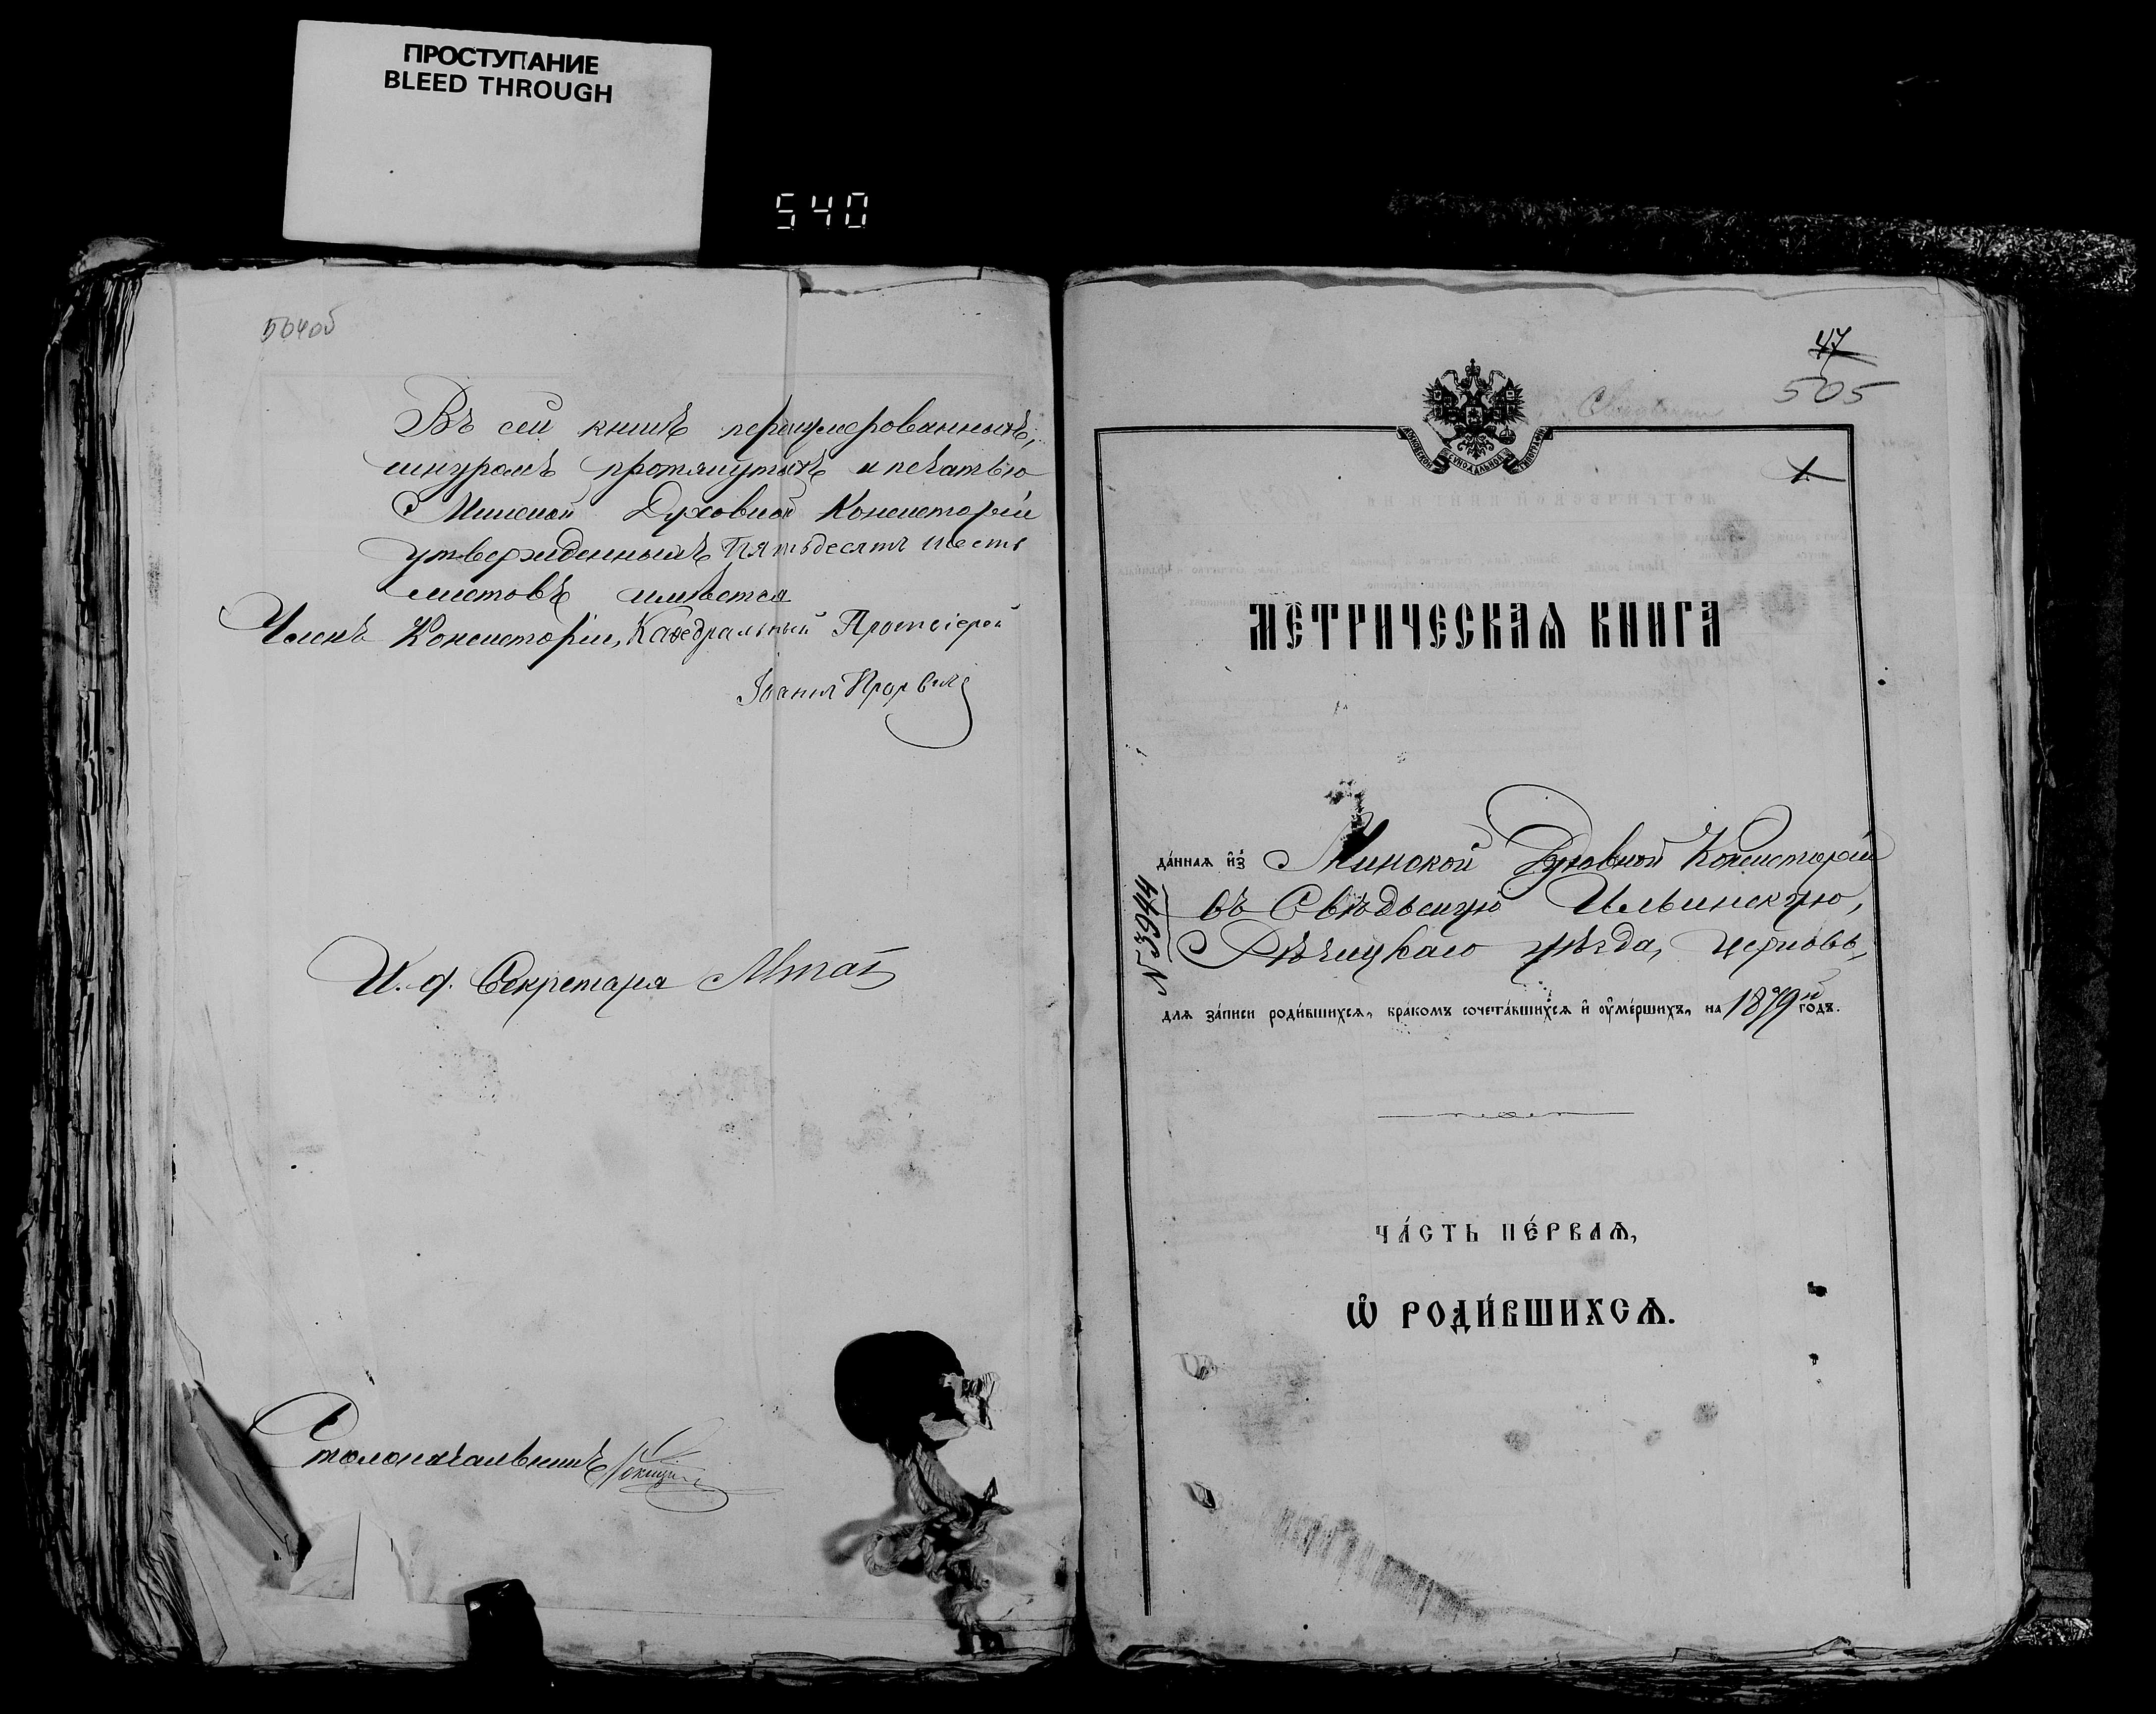 ПРОСТУПАНИЕ
BLEED THROUGH
540
504об
Въ сей книгѣ перенумерованныхъ,
шнуромъ протянутыхъ и печатью
Минской Духовной Консисторіи
утвержденныхъ Пятьдесятъ шесть
листовъ имѣется
Членъ Консисторіи, Каѳедральный Протоіерей
Іоаннъ
И. д. Секретаря
Столоначальникъ
47
505
1
МОСКОВСКОЙ СѴНОДАЛЬНОЙ ТИПОГРАФІИ
МЕТРИЧЕСКАѦ КНИГА
да́ннаѧ и҆з̾ Минской Духовной Консисторіи
въ Свѣдьскую Ильинскую,
Рѣчицкаго уѣзда, церковь,
№ 3944
длѧ за́писи роди́вшихсѧ, бракомъ сочета́вшихсѧ и҆ ѹ҆ме́ршихъ, на 1879й годъ.
ЧА́СТЬ ПЕ́РВАѦ,
Ѡ҆ РОДИ́ВШИХСѦ.